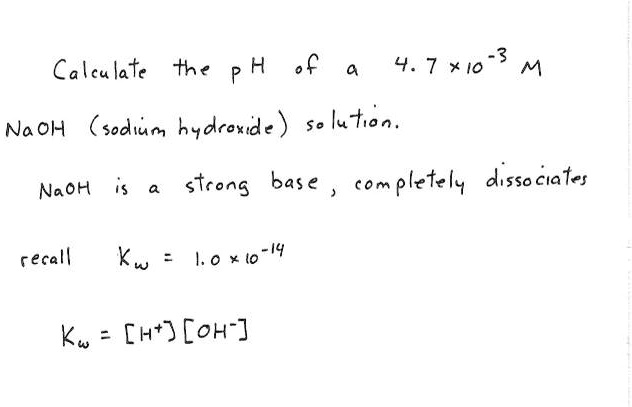 Calculate the pH of a 4.7 × 10⁻³ M
NaOH (sodium hydroxide) solution.
NaOH is a strong base, completely dissociates
recall Kw = 1.0 × 10⁻¹⁴
Kw = [H⁺][OH⁻]